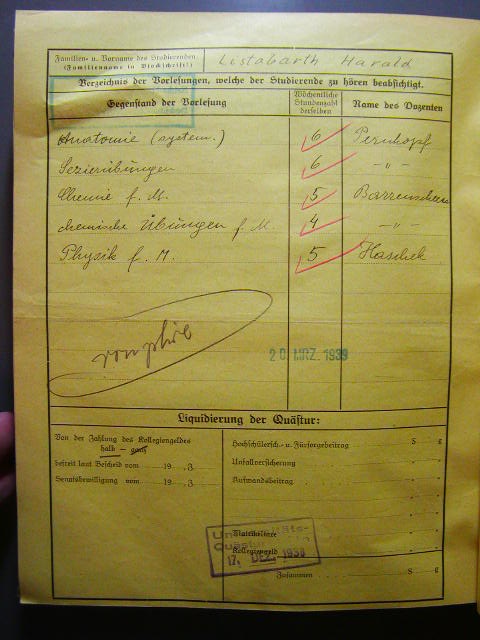 Familien- u. Vorname des Studierenden
(Familienname in Blockschrift!)
Listabarth Harald
Verzeichnis der Vorlesungen, welche der Studierende zu hören beabsichtigt.
Gegenstand der Vorlesung
Wöchentliche
Stundenzahl
derselben
Name des Dozenten
Anatomie (system.) 6 Pernkopf
Sezierübungen 6 -„-
Chemie f. M. 5 Barrenscheen
chemische Übungen f. M. 4 -„-
Physik f. M. 5 Haschek
20. MRZ. 1939
Liquidierung der Quästur:
Von der Zahlung des Kollegiengeldes
halb – ganz
befreit laut Bescheid vom 19 .3
Senatsbewilligung vom 19 .3
Hochschülersch.- u. Fürsorgebeitrag S g
Unfallversicherung
Aufwandsbeitrag
Matrikeltaxe
Kollegiengeld
Universitäts-
Quästur
17. DEZ. 1938
Zusammen S g